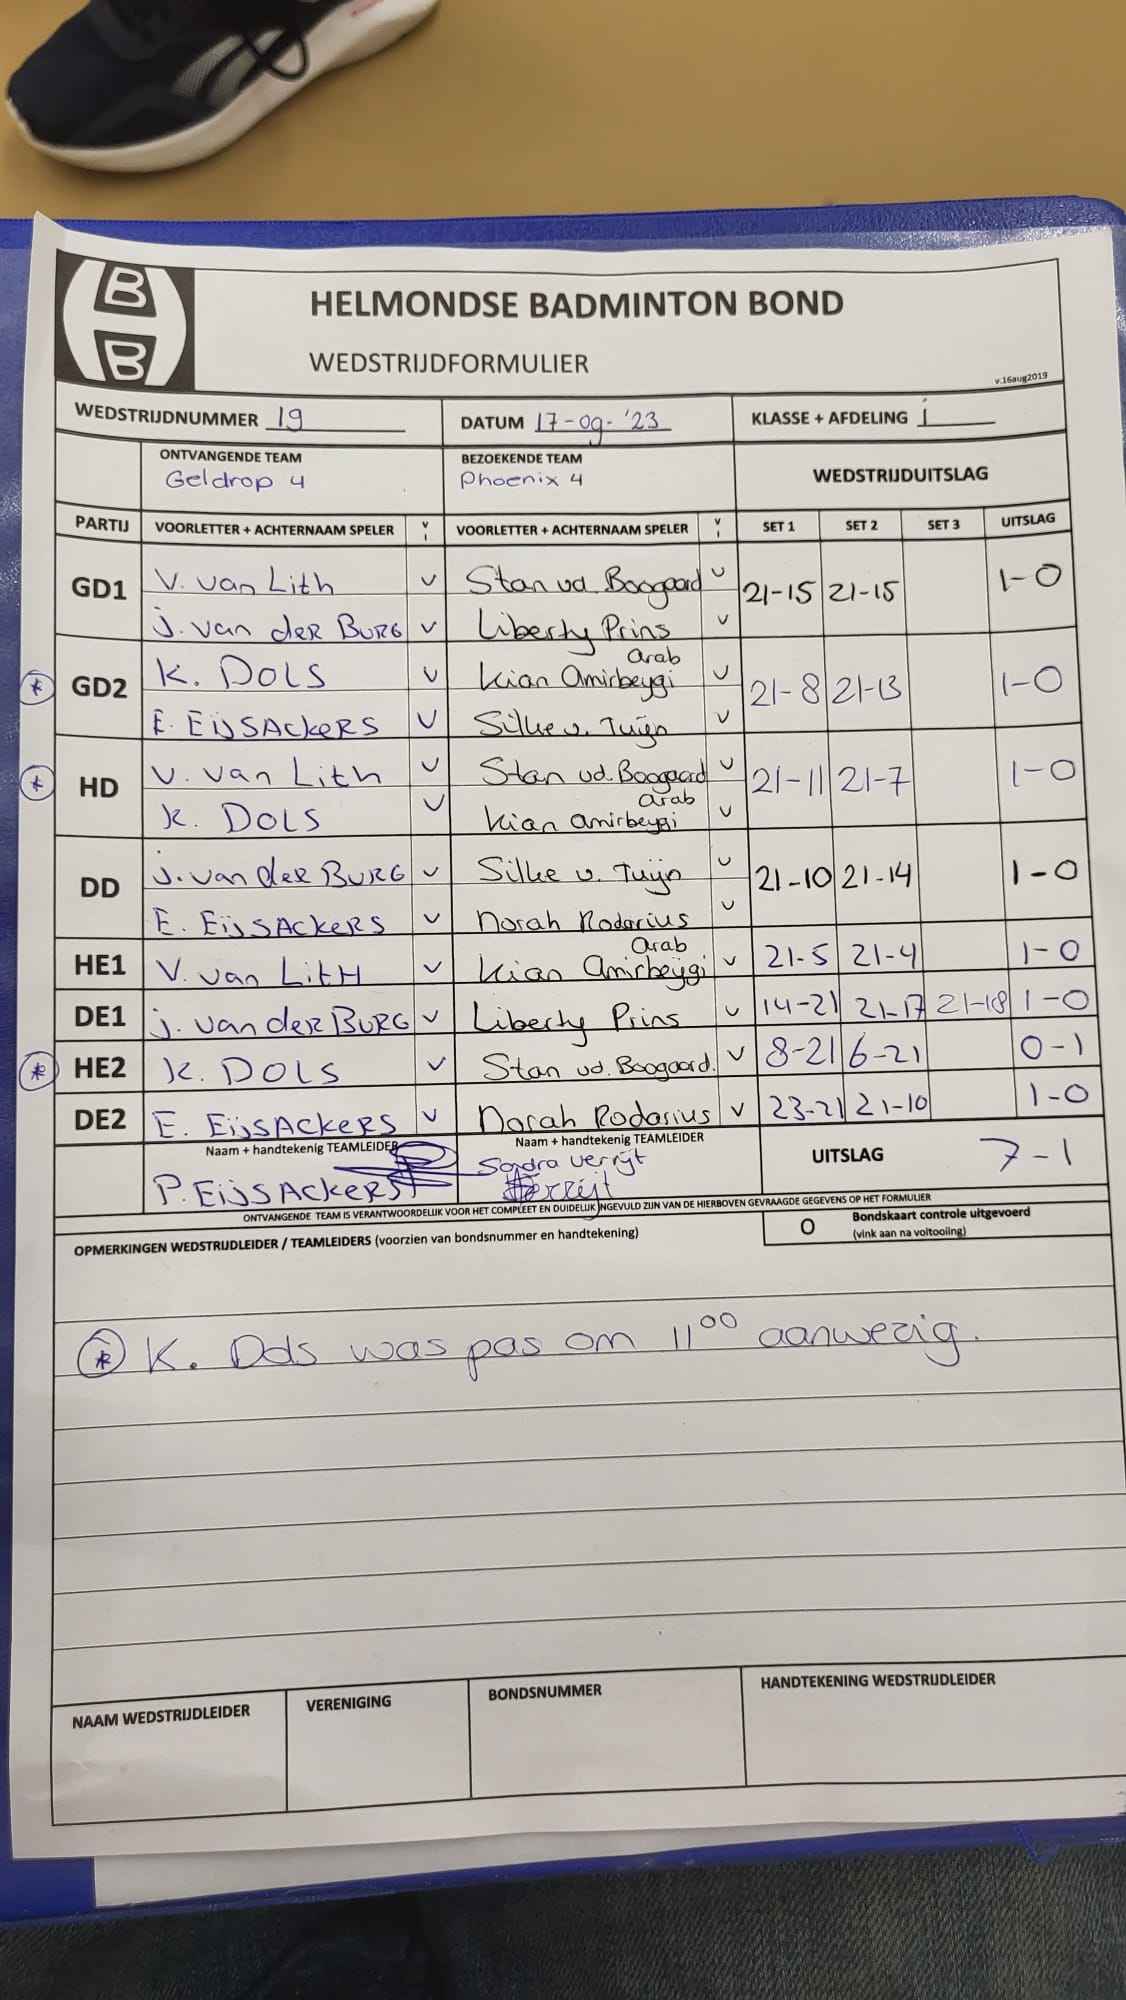 B
B
HELMONDSE BADMINTON BOND
WEDSTRIJDFORMULIER
v.16aug2019
WEDSTRIJDNUMMER 19 DATUM 17-09-'23 KLASSE + AFDELING j
ONTVANGENDE TEAM BEZOEKENDE TEAM WEDSTRIJDUITSLAG
Geldrop 4 Phoenix 4
PARTIJ VOORLETTER + ACHTERNAAM SPELER V I VOORLETTER + ACHTERNAAM SPELER V I SET 1 SET 2 SET 3 UITSLAG
GD1 V. van Lith v Stan vd. Boogaard v 21-15 21-15 1-0
j. van der BURG v Liberty Prins v
* GD2 K. DOLS v Kian Amirbeygi arab v 21-8 21-13 1-0
E. EijSAckERS v Silke v. Tuijn v
* HD V. van Lith v Stan vd. Boogaard v 21-11 21-7 1-0
K. DOLS v Kian amirbeygi arab v
DD j. van der BURG v Silke v. Tuijn v 21-10 21-14 1-0
E. EijSAckERS v Norah Rodarius v
HE1 V. van LitH v Kian Amirbeijgi arab v 21-5 21-4 1-0
DE1 j. van der BURG v Liberty Prins v 14-21 21-17 21-18 1-0
* HE2 K. DOLS v Stan vd. Boogaard. v 8-21 6-21 0-1
DE2 E. EijSAckERS v Norah Rodarius v 23-21 21-10 1-0
Naam + handtekenig TEAMLEIDER Naam + handtekenig TEAMLEIDER UITSLAG 7-1
P. EijSAckERS Sandra Verrijt
ONTVANGENDE TEAM IS VERANTWOORDELIJK VOOR HET COMPLEET EN DUIDELIJK INGEVULD ZIJN VAN DE HIERBOVEN GEVRAAGDE GEGEVENS OP HET FORMULIER
OPMERKINGEN WEDSTRIJDLEIDER / TEAMLEIDERS (voorzien van bondsnummer en handtekening) O Bondskaart controle uitgevoerd
(vink aan na voltooiing)
* K. Dols was pas om 11 00 aanwezig.
NAAM WEDSTRIJDLEIDER VERENIGING BONDSNUMMER HANDTEKENING WEDSTRIJDLEIDER